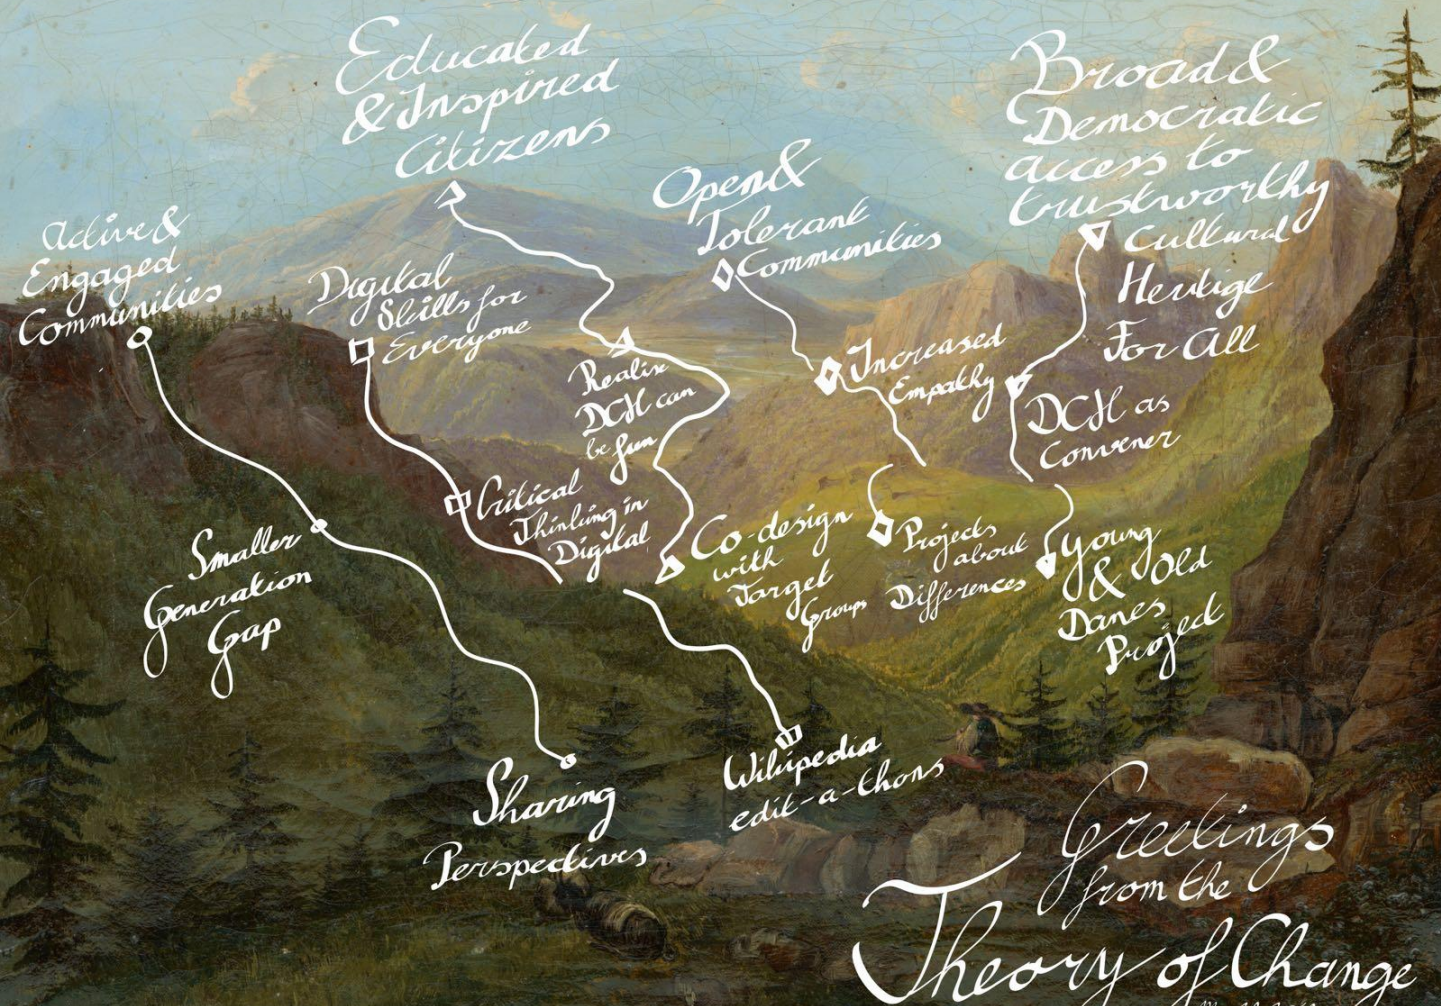 Educated
& Inspired
Citizens
Broad &
Democratic
access to
trustworthy
Cultural
Heritige
For All
Open &
Tolerant
Communities
Active &
Engaged
Communities
Digital
Skills for
Everyone
Realise
DCH can
be fun
Increased
Empathy
DCH as
Convener
Critical
Thinking in
Digital
Smaller
Generation
Gap
Co-design
with
Target
Groups
Projects
about
Differences
Young
& Old
Danes
Project
Sharing
Perspectives
Wikipedia
edit-a-thons
Greetings
from the
Theory of Change